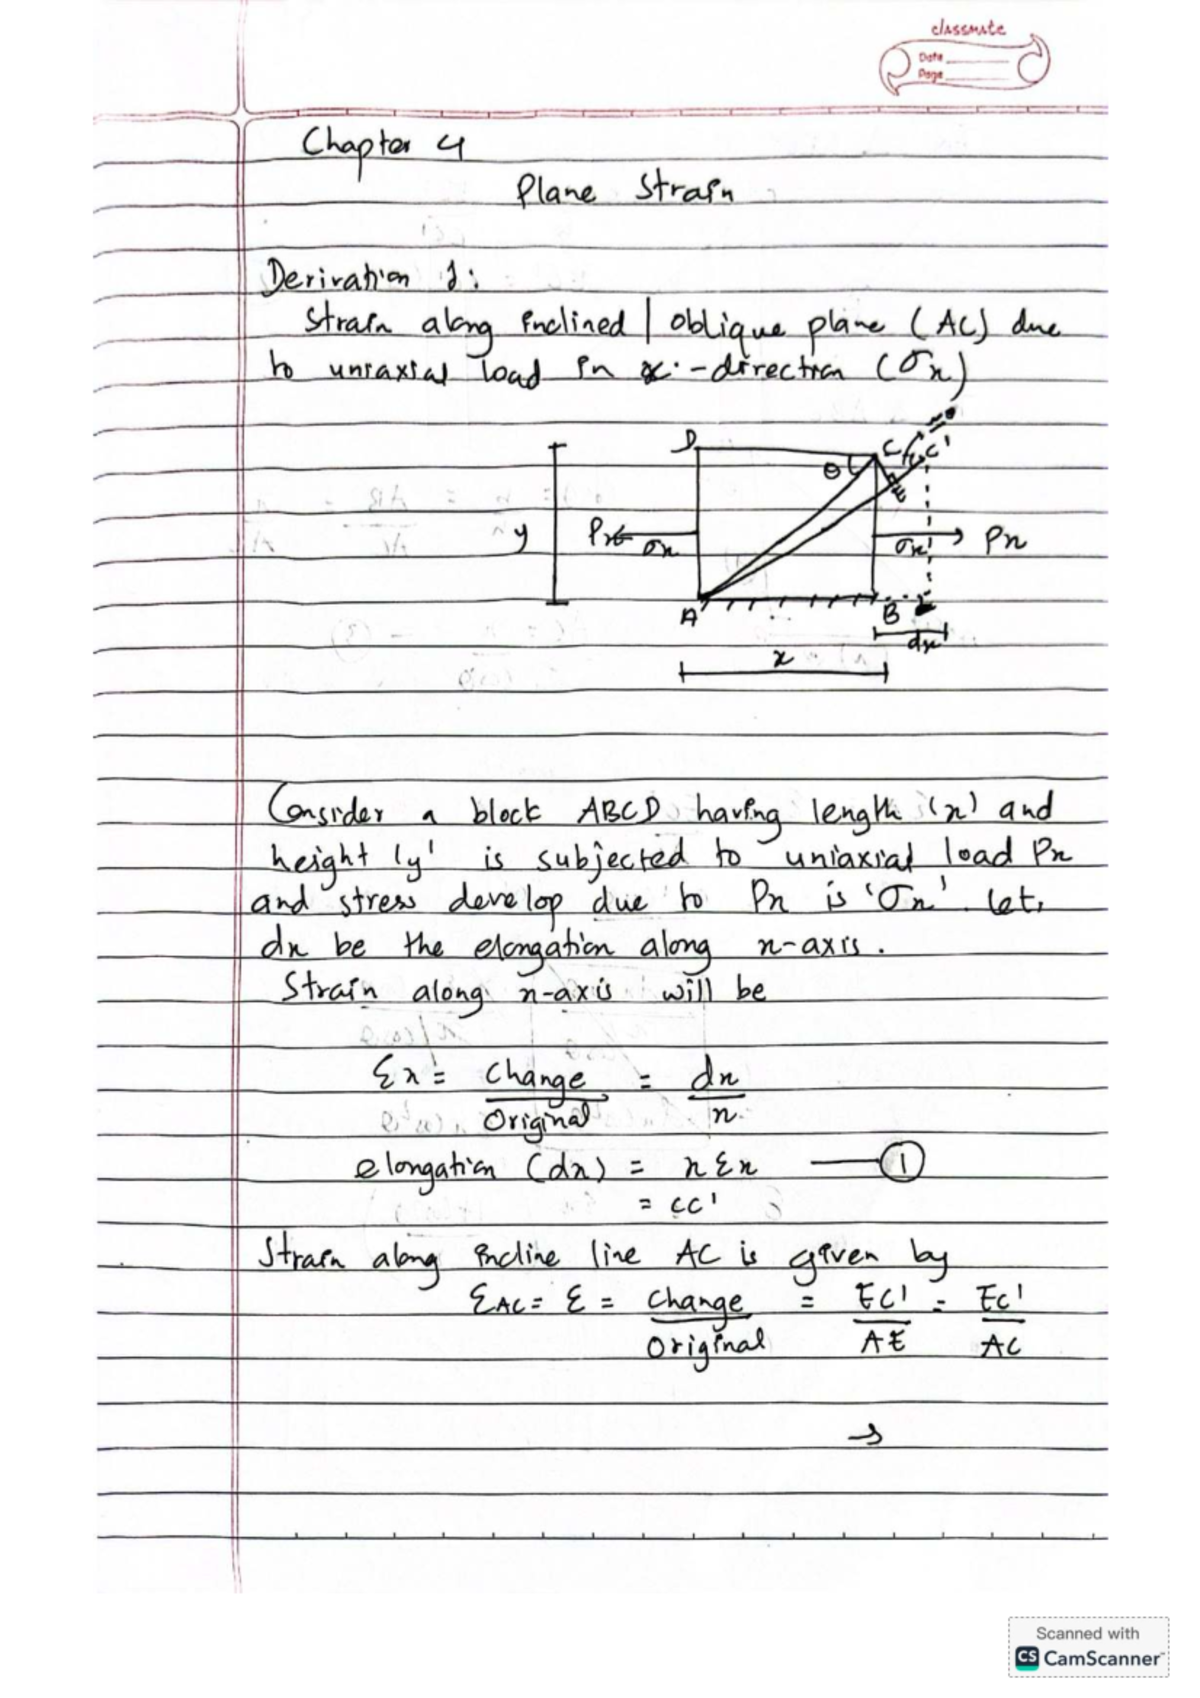 classmate
Date
Page
Chapter 4
Plane Strain
Derivation 1:
Strain along inclined / oblique plane (AC) due
to uniaxial load in x-direction (σx)
D
C
C'
θ
E
y
Px
σx
σx
Px
A
B
dx
x
Consider a block ABCD having length (x) and
height 'y' is subjected to uniaxial load Px
and stress develop due to Px is 'σx'. Let,
dx be the elongation along x-axis.
Strain along x-axis will be
Ɛx = Change / Original = dx / x
elongation (dx) = x Ɛx —— ①
= CC'
Strain along incline line AC is given by
ƐAC = Ɛ = Change / Original = EC' / AE = EC' / AC
→
Scanned with
CS CamScanner